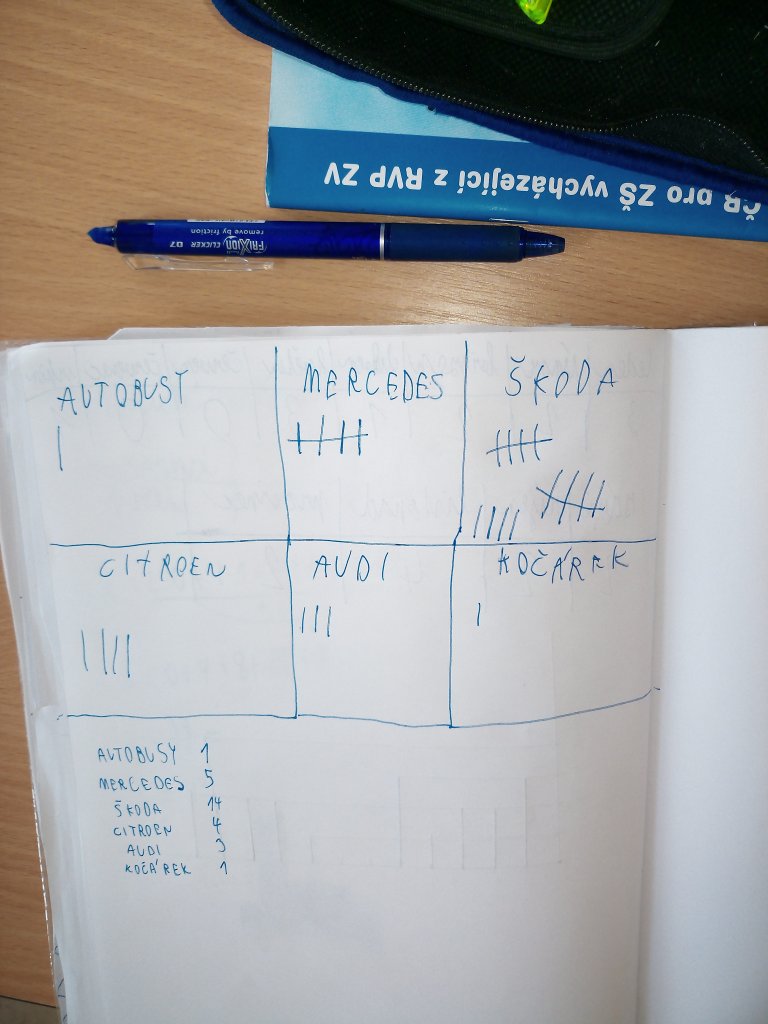 ČR pro ZŠ vycházející z RVP ZV
FRIXION CLICKER 07
remove by friction
AUTOBUSY
MERCEDES
ŠKODA
CITROEN
AUDI
KOČÁREK
AUTOBUSY 1
MERCEDES 5
ŠKODA 14
CITROEN 4
AUDI 3
KOČÁREK 1